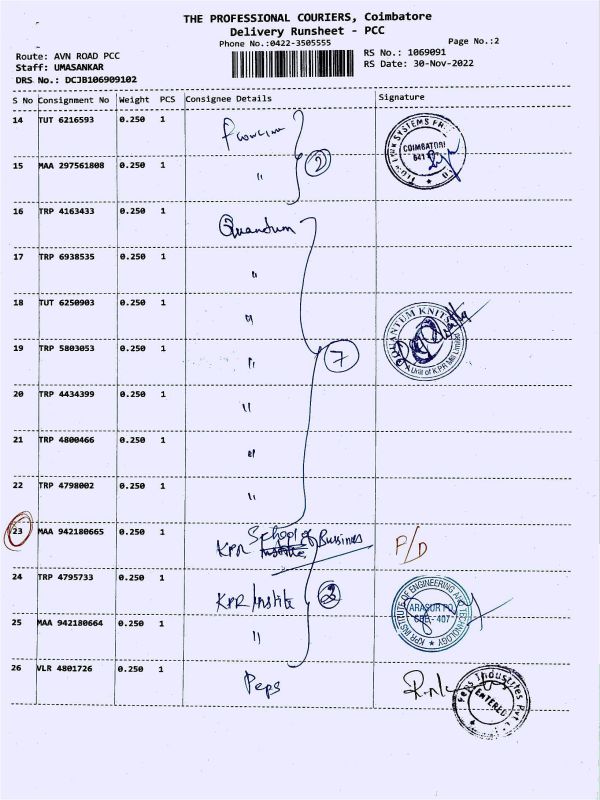 THE PROFESSIONAL COURIERS, Coimbatore
Delivery Runsheet - PCC
Phone No.:0422-3505555
Page No.:2
Route: AVN ROAD PCC
RS No.: 1069091
Staff: UMASANKAR
RS Date: 30-Nov-2022
DRS No.: DCJB106909102
S No Consignment No Weight PCS Consignee Details Signature
14 TUT 6216593 0.250 1
COIMBATORE
15 MAA 297561808 0.250 1 " 2
16 TRP 4163433 0.250 1 Quantum
17 TRP 6938535 0.250 1 "
18 TUT 6250903 0.250 1 "
QUANTUM KNITS
A Unit of K.P.R Mill Limited
19 TRP 5803053 0.250 1 " 7
20 TRP 4434399 0.250 1 "
21 TRP 4800466 0.250 1 "
22 TRP 4798002 0.250 1 "
23 MAA 942180665 0.250 1 KPR School of Bussines P/D
24 TRP 4795733 0.250 1 KPR Institte
KPR INSTITUTE OF ENGINEERING AND TECHNOLOGY
ARASUR PO
CBE - 407
25 MAA 942180664 0.250 1 "
26 VLR 4801726 0.250 1 Peps
Peps Industries Pvt
ENTERED